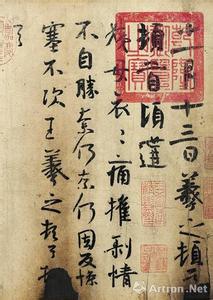 十一月十三日羲之頓首
頓首頃遘
姨母哀〻痛摧剝情
不自勝奈何奈何因反慘
塞不次王羲之頓首頓
首
Artron.Net